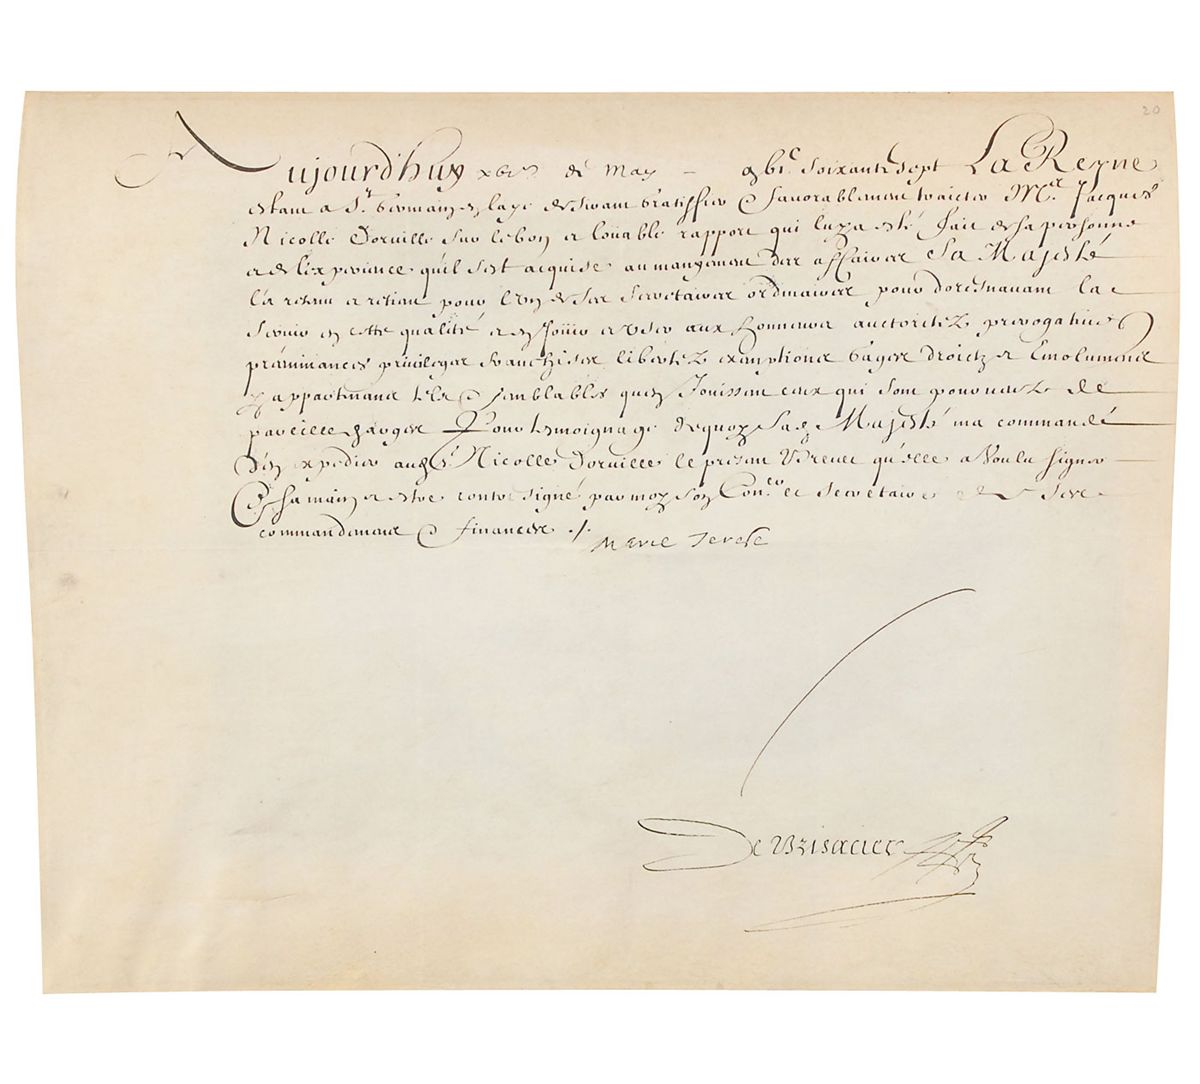 20
Aujourd'huy xviii de May – gbic soixante sept La Reyne
estant a St. Germain en laye desirant gratiffier & favorablement traicter Mr. Jacques
Nicolle Dorville sur le bon et louable rapport qui luy a esté fait de sa personne
et de l'experience qu'il s'est acquise au manyement des affaires Sa Majesté
l'a retenu et retient pour l'un de ses secretaires ordinaires pour doresnavant la
servir en cette qualité et en jouir et user aux honneurs auctoritez prerogatives
préminances privileges franchises libertez exemptions gages droictz et Emolumens
y appartenans tels & semblables que en Jouissent ceux qui sont pourveus de
pareille charges Pour temoignage de quoy Sa de Majesté ma commandé
d'en expedier aud. Sr. Nicolle Dorville le present Brevet qu'elle a voulu signer
de sa main et estre contresigné par moy son Coner. et secretaire de ses
commandemens & finances ./.
Marie Terese
De Brisacier